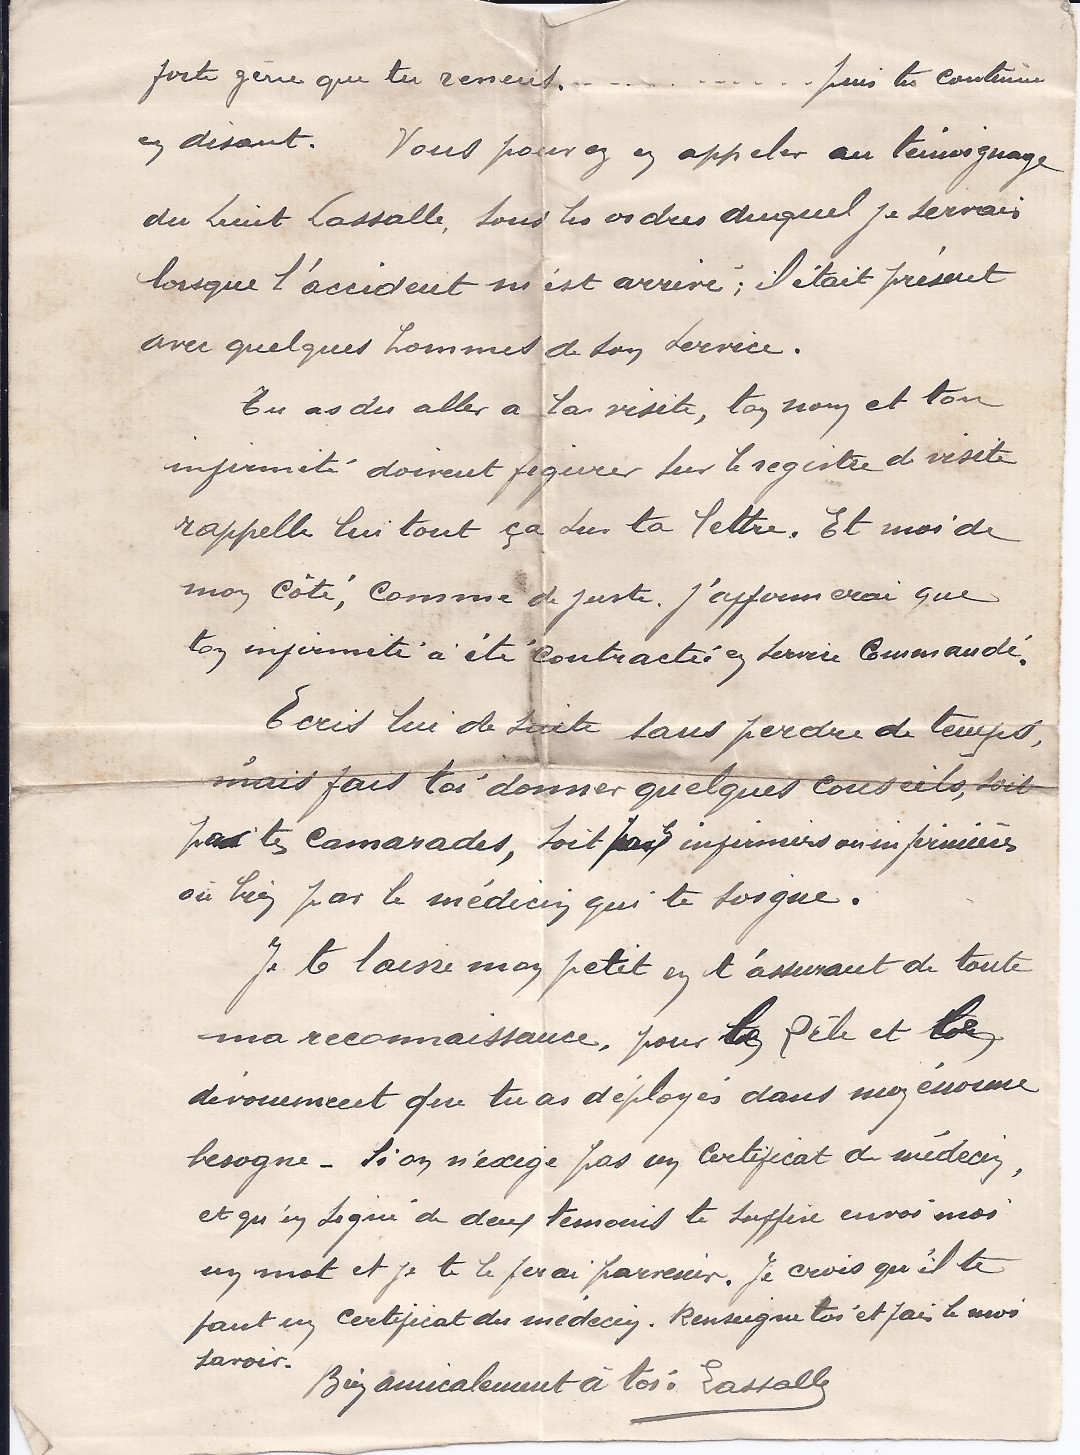 forte gène que tu ressens. . . . . . . . . . puis tu continue
en disant. Vous pouvez en appeler au témoignage
du Lieut Lassalle, sous les ordres duquel je servais
lorsque l'accident m'est arrivé ; il était présent
avec quelques hommes de son service.
Tu as du aller a la visite, ton nom et ton
infirmité doivent figurer sur le registre de visite
rappelle lui tout ça sur ta lettre. Et moi de
mon côté, comme de juste. j'affirmerai que
ton infirmité a été contractée en service commandé.
Ecris lui de suite sans perdre de temps,
mais fais toi donner quelques conseils, soit
par tes camarades, soit par infirmiers ou infirmières
ou bien par le médecin qui te soigne.
Je te laisse mon petit en t'assurant de toute
ma reconnaissance, pour le zèle et le
dévouement que tu as déployés dans mon énorme
besogne - Si on n'exige pas un certificat de médecin,
et qu'un signé de deux temoins te suffise envoi moi
un mot et je te le ferai parvenir. Je crois qu'il te
faut un certificat du médecin. Renseigne toi et fais le moi
savoir.
Bien amicalement à toi. Lassalle